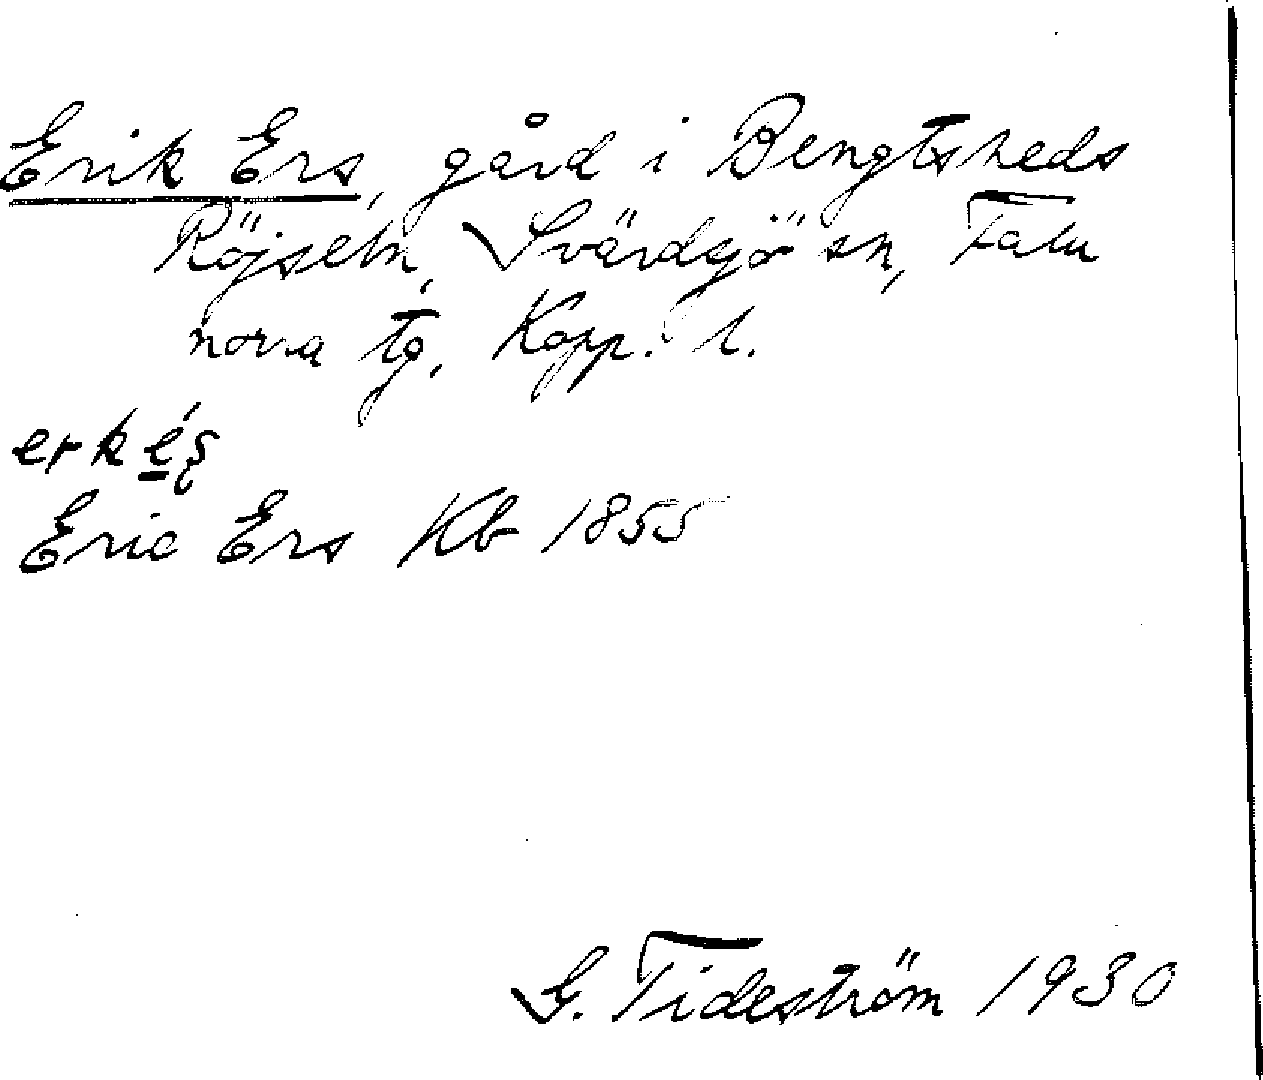 Erik Ers, gård i Bengtsheds
Röjseln, Svärdsjö sn, Falu
norra tg, Kopp. l.
erkéʂ
Eric Ers Kb 1855
G. Tideström 1930